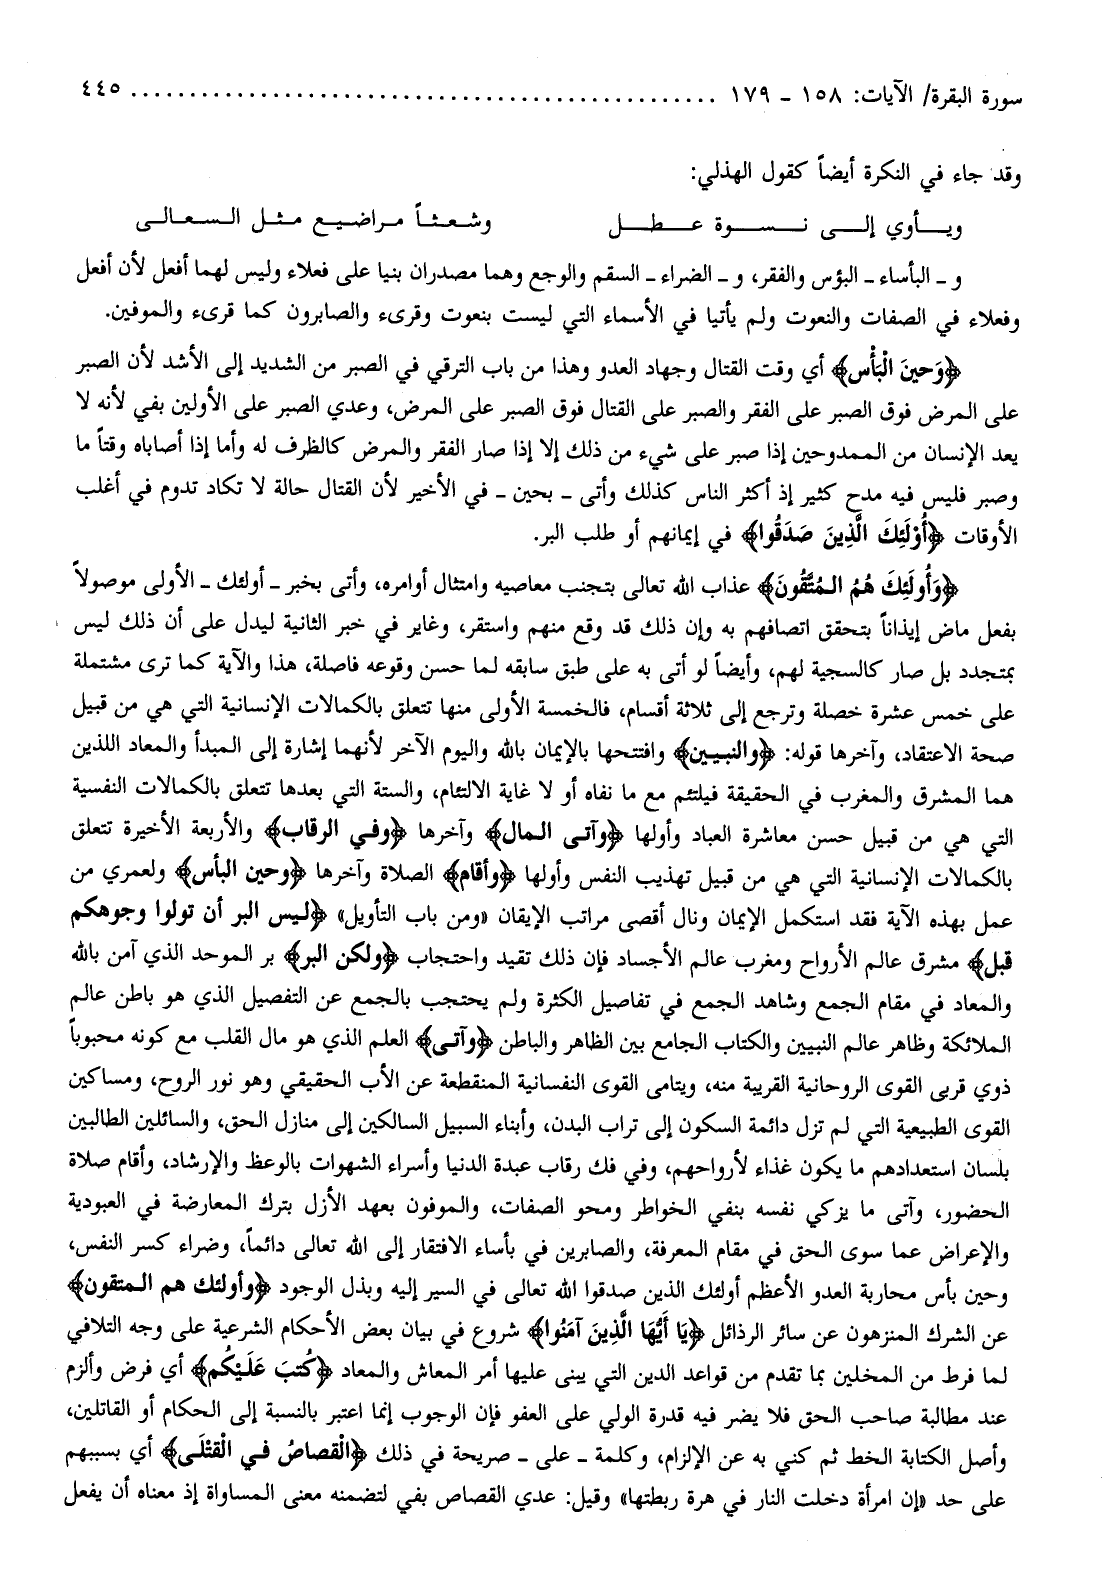 سورة البقرة/ الآيات: ١٥٨ - ١٧٩ ................................................ ٤٤٥
وقد جاء في النكرة أيضاً كقول الهذلي:
ويـــأوي إلـــى نـــســـوة عـــطـــل وشـعـثـاً مـراضـيـع مـثـل الـسـعـالـي
و ـ البأساء ـ البؤس والفقر، و ـ الضراء ـ السقم والوجع وهما مصدران بنيا على فعلاء وليس لهما أفعل لأن أفعل
وفعلاء في الصفات والنعوت ولم يأتيا في الأسماء التي ليست بنعوت وقرىء والصابرون كما قرىء والموفين.
﴿وَحينَ الْبَأْس﴾ أي وقت القتال وجهاد العدو وهذا من باب الترقي في الصبر من الشديد إلى الأشد لأن الصبر
على المرض فوق الصبر على الفقر والصبر على القتال فوق الصبر على المرض، وعدي الصبر على الأولين بفي لأنه لا
يعد الإنسان من الممدوحين إذا صبر على شيء من ذلك إلا إذا صار الفقر والمرض كالظرف له وأما إذا أصاباه وقتاً ما
وصبر فليس فيه مدح كثير إذ أكثر الناس كذلك وأتى ـ بحين ـ في الأخير لأن القتال حالة لا تكاد تدوم في أغلب
الأوقات ﴿أُوْلَئِكَ الَّذِينَ صَدَقُوا﴾ في إيمانهم أو طلب البر.
﴿وَأُولَئِكَ هُمُ المُتَّقُونَ﴾ عذاب الله تعالى بتجنب معاصيه وامتثال أوامره، وأتى بخبر ـ أولئك ـ الأولى موصولاً
بفعل ماض إيذاناً بتحقق اتصافهم به وإن ذلك قد وقع منهم واستقر، وغاير في خبر الثانية ليدل على أن ذلك ليس
بمتجدد بل صار كالسجية لهم، وأيضاً لو أتى به على طبق سابقه لما حسن وقوعه فاصلة، هذا والآية كما ترى مشتملة
على خمس عشرة خصلة وترجع إلى ثلاثة أقسام، فالخمسة الأولى منها تتعلق بالكمالات الإنسانية التي هي من قبيل
صحة الاعتقاد، وآخرها قوله: ﴿والنبيين﴾ وافتتحها بالإيمان بالله واليوم الآخر لأنهما إشارة إلى المبدأ والمعاد اللذين
هما المشرق والمغرب في الحقيقة فيلتئم مع ما نفاه أو لا غاية الالتئام، والستة التي بعدها تتعلق بالكمالات النفسية
التي هي من قبيل حسن معاشرة العباد وأولها ﴿وآتى المال﴾ وآخرها ﴿وفي الرقاب﴾ والأربعة الأخيرة تتعلق
بالكمالات الإنسانية التي هي من قبيل تهذيب النفس وأولها ﴿وأقام﴾ الصلاة وآخرها ﴿وحين البأس﴾ ولعمري من
عمل بهذه الآية فقد استكمل الإيمان ونال أقصى مراتب الإيقان «ومن باب التأويل» ﴿ليس البر أن تولوا وجوهكم
قبل﴾ مشرق عالم الأرواح ومغرب عالم الأجساد فإن ذلك تقيد واحتجاب ﴿ولكن البر﴾ بر الموحد الذي آمن بالله
والمعاد في مقام الجمع وشاهد الجمع في تفاصيل الكثرة ولم يحتجب بالجمع عن التفصيل الذي هو باطن عالم
الملائكة وظاهر عالم النبيين والكتاب الجامع بين الظاهر والباطن ﴿وآتى﴾ العلم الذي هو مال القلب مع كونه محبوباً
ذوي قربى القوى الروحانية القريبة منه، ويتامى القوى النفسانية المنقطعة عن الأب الحقيقي وهو نور الروح، ومساكين
القوى الطبيعية التي لم تزل دائمة السكون إلى تراب البدن، وأبناء السبيل السالكين إلى منازل الحق، والسائلين الطالبين
بلسان استعدادهم ما يكون غذاء لأرواحهم، وفي فك رقاب عبدة الدنيا وأسراء الشهوات بالوعظ والإرشاد، وأقام صلاة
الحضور، وآتى ما يزكي نفسه بنفي الخواطر ومحو الصفات، والموفون بعهد الأزل بترك المعارضة في العبودية
والإعراض عما سوى الحق في مقام المعرفة، والصابرين في بأساء الافتقار إلى الله تعالى دائماً، وضراء كسر النفس،
وحين بأس محاربة العدو الأعظم أولئك الذين صدقوا الله تعالى في السير إليه وبذل الوجود ﴿وأولئك هم المتقون﴾
عن الشرك المنزهون عن سائر الرذائل ﴿يَا أَيُّهَا الَّذِينَ آمَنُوا﴾ شروع في بيان بعض الأحكام الشرعية على وجه التلافي
لما فرط من المخلين بما تقدم من قواعد الدين التي يبنى عليها أمر المعاش والمعاد ﴿كُتبَ عَلَيْكُم﴾ أي فرض وألزم
عند مطالبة صاحب الحق فلا يضر فيه قدرة الولي على العفو فإن الوجوب إنما اعتبر بالنسبة إلى الحكام أو القاتلين،
وأصل الكتابة الخط ثم كني به عن الإلزام، وكلمة ـ على ـ صريحة في ذلك ﴿الْقصاصُ في الْقَتْلَى﴾ أي بسببهم
على حد «إن امرأة دخلت النار في هرة ربطتها» وقيل: عدي القصاص بفي لتضمنه معنى المساواة إذ معناه أن يفعل